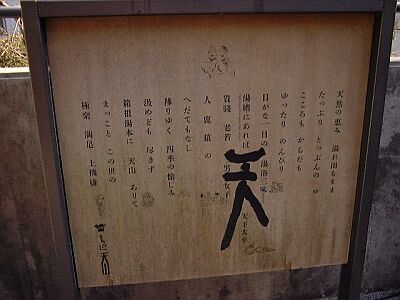 天然の恵み 溢れ出るまま
たっぷり とっぷんの ゆ
こころも からだも
ゆったり のんびり
日がな一日の 湯浴三昧
湯槽にあれば 天下太平
貴賤 老若 男女子
人 鹿 猿 の
へだてもなし
移りゆく 四季の愉しみ
汲めども 尽きず
箱根湯本に 天山 ありて
まっこと この世の
極楽 満足 上機嫌
天山
天